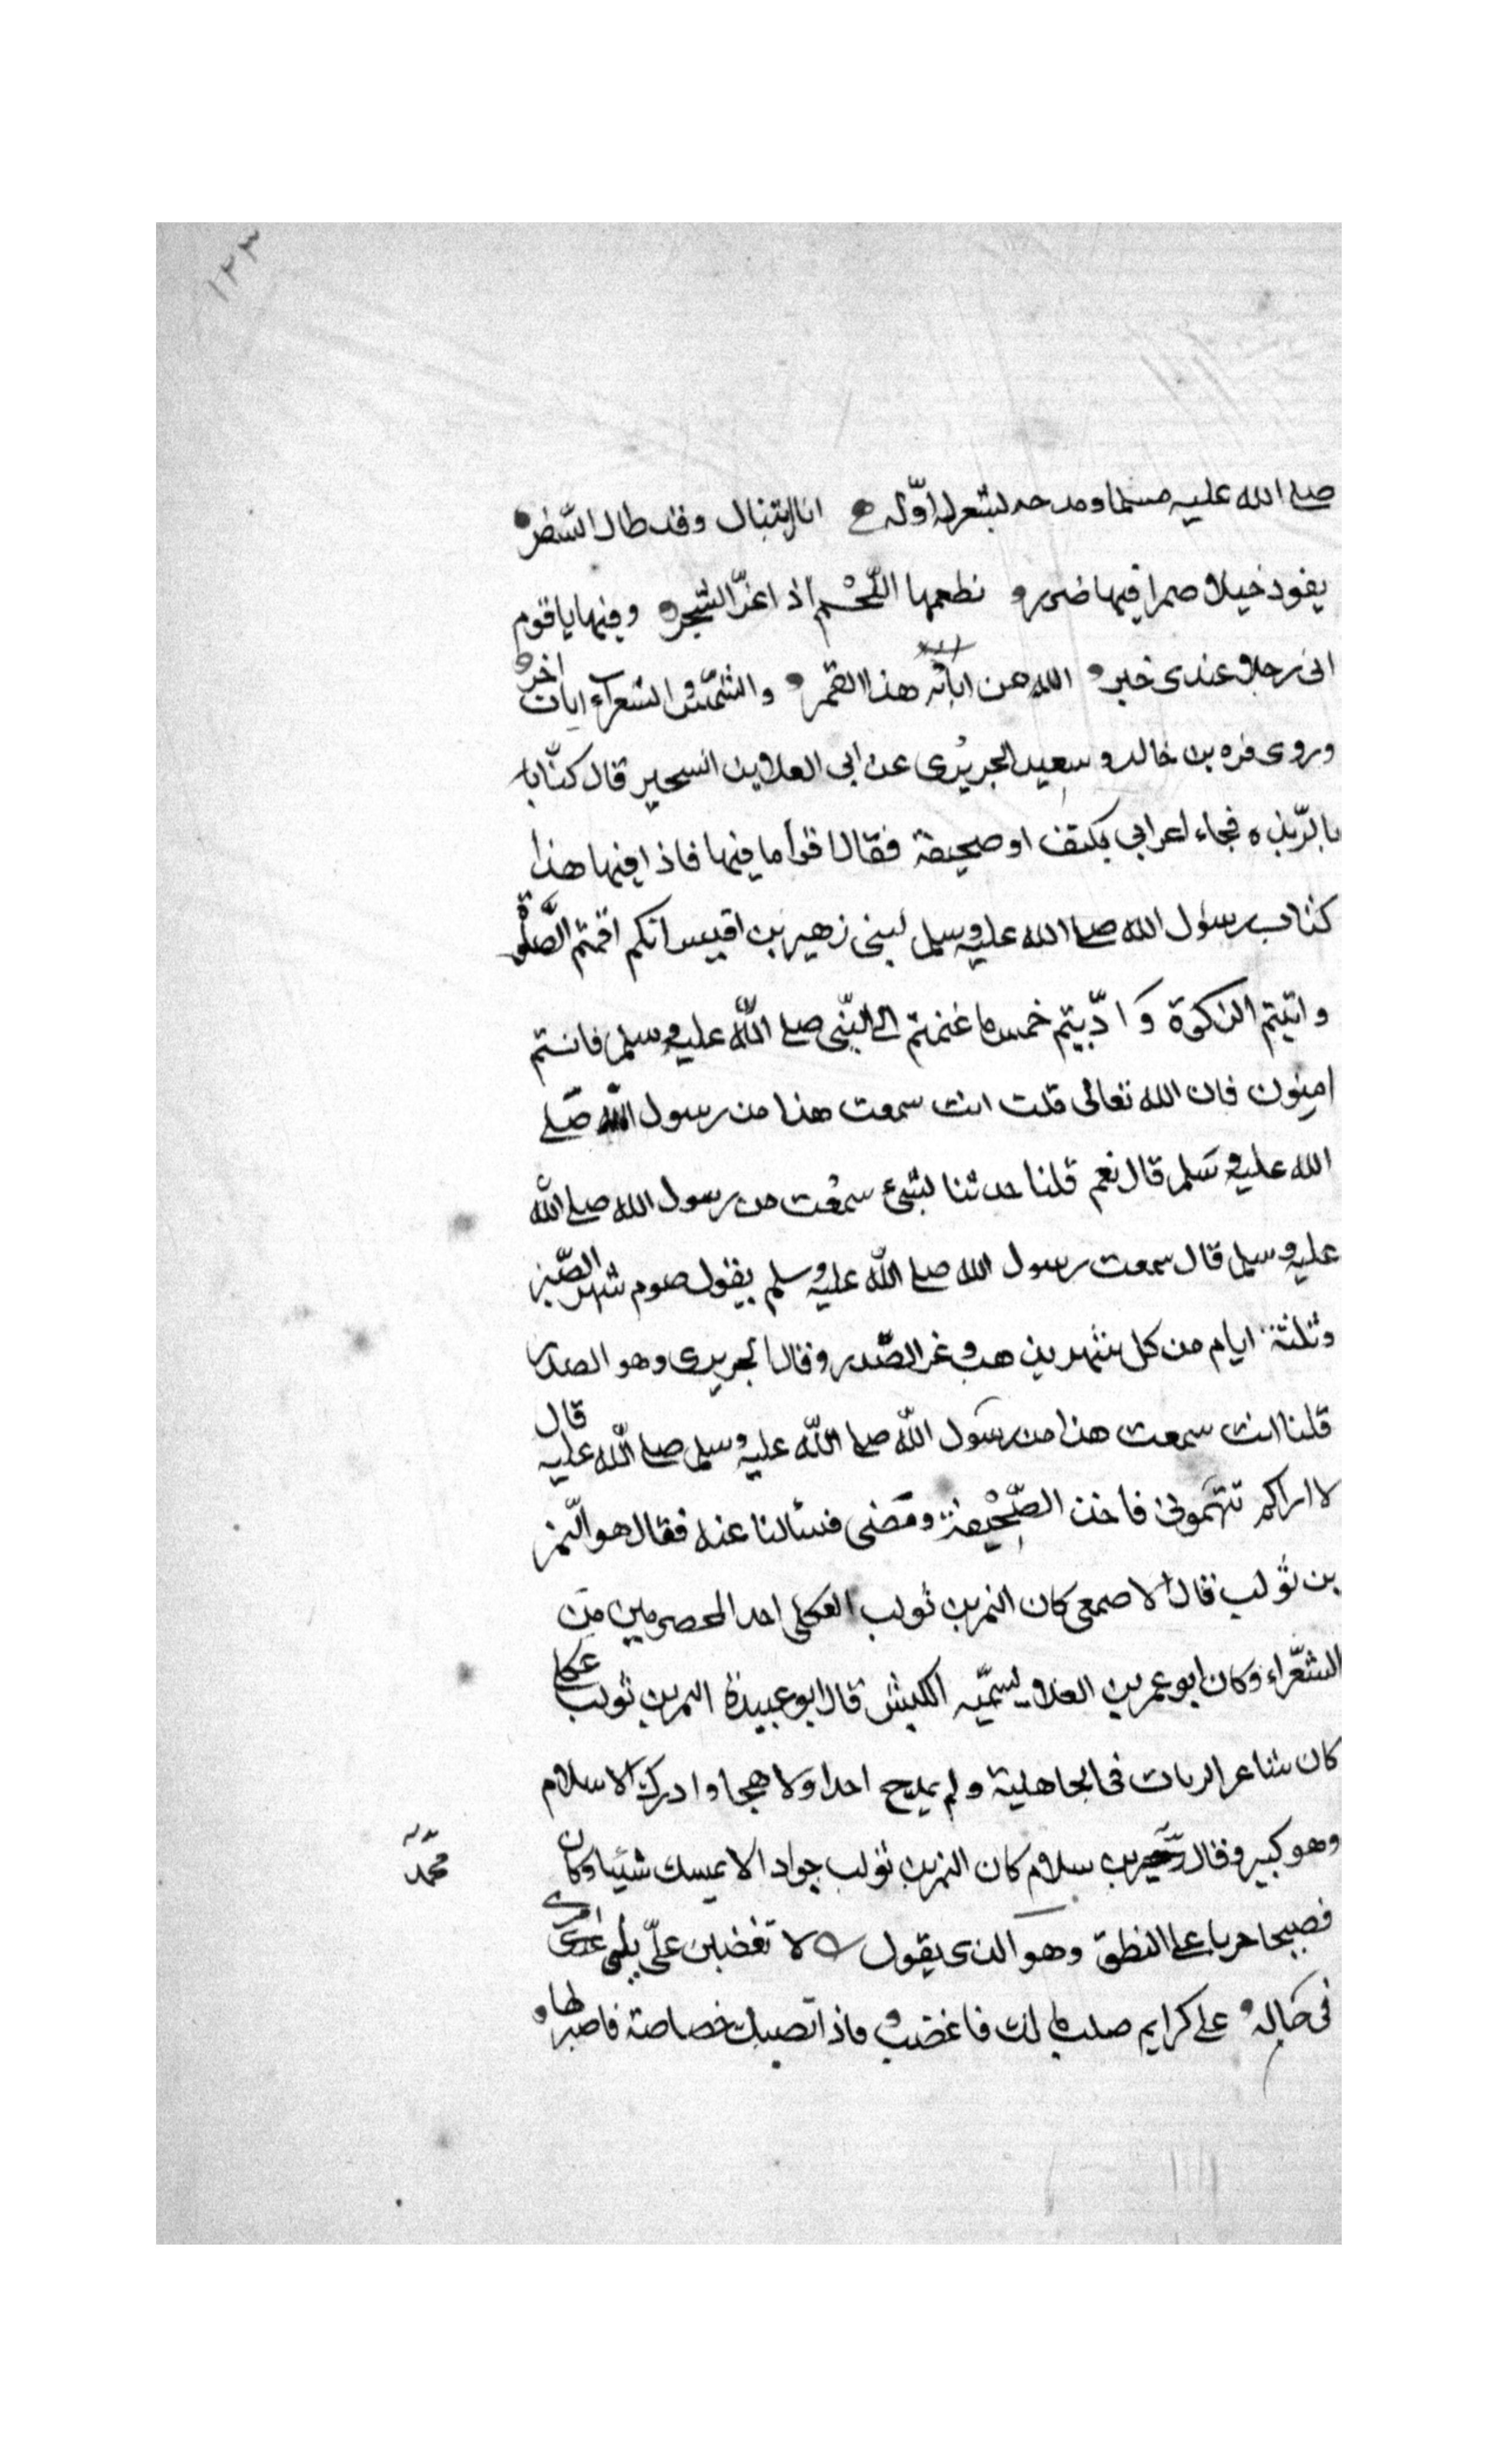 ١٢٣
صلى الله عليه مسلما ومدحه بشعر له اوّله انا اتيناك وقد طال السّفر
يقود خيلا ضمرا فيها ضرر نطعمها اللّحم اذا عزّ الشجر وفيها يا قوم
انى رجل عندى خبر الله من اياته هذا القمر والشمس والشعراء ايات اخر
وروى قره بن خالد و سعيد الجريرى عن ابى العلا بن الشحير قال كنّا با
بالرّبذه فجاء اعرابي بكتف او صحيفة فقال اقرأ ما فيها فاذا فيها هذا
كتاب رسول الله صلى الله عليه وسلم لبنى زهير بن اقيس انكم اقمتم الصّلوة
واتيتم الزكوة وَ ادّيتم خمس ما غنمتم الى النّبى صلى اللّه عليه وسلم فانتم
امنون فان الله تعالى قلت انت سمعت هذا من رسول الله صَلى
الله عليه وسَلم قال نعم قلنا حدثنا بشئ سمعت من رسول الله صلى الله
عليه وسلم قال سمعت رسول الله صلى اللّه عليه وسلم يقول صوم شهر الصّبر
وثلثة ايام من كل شهر يذهب وغر الصّدر وقال الجريرى وهو الصدر
قلنا انت سمعت هذا من رسَول اللّه صلى اللّه عليه وسلم صلى اللّه عليه قال
لا اراكم تتهَمونى فاخذ الصّحيفة ومَضى فسألنا عنه فقال هو النّمر
بن تولب قال الاصمعى كان النمر بن تولب العكلى احد المخصرمين من
الشعّراء وكان ابو عمر بن العلا يسمّيه الكيش قال ابو عبيدة النمر بن تولب عكلى
كان شاعر الربات فى الجاهلية ولم يمدح احدا ولا هجا وادرك الاسلام
وهو كبير وقال بن سلام كان النمر بن تولب جوادا لا يمسك شيئا وكان
محمّد
فصيحا جريا على النطق وهو الذى يقول لا تغضبن علىّ امرى
فى مَاله وعلى كرايم صلب مالك فاغضب واذا تصبك خصاصة فاصبر لها و